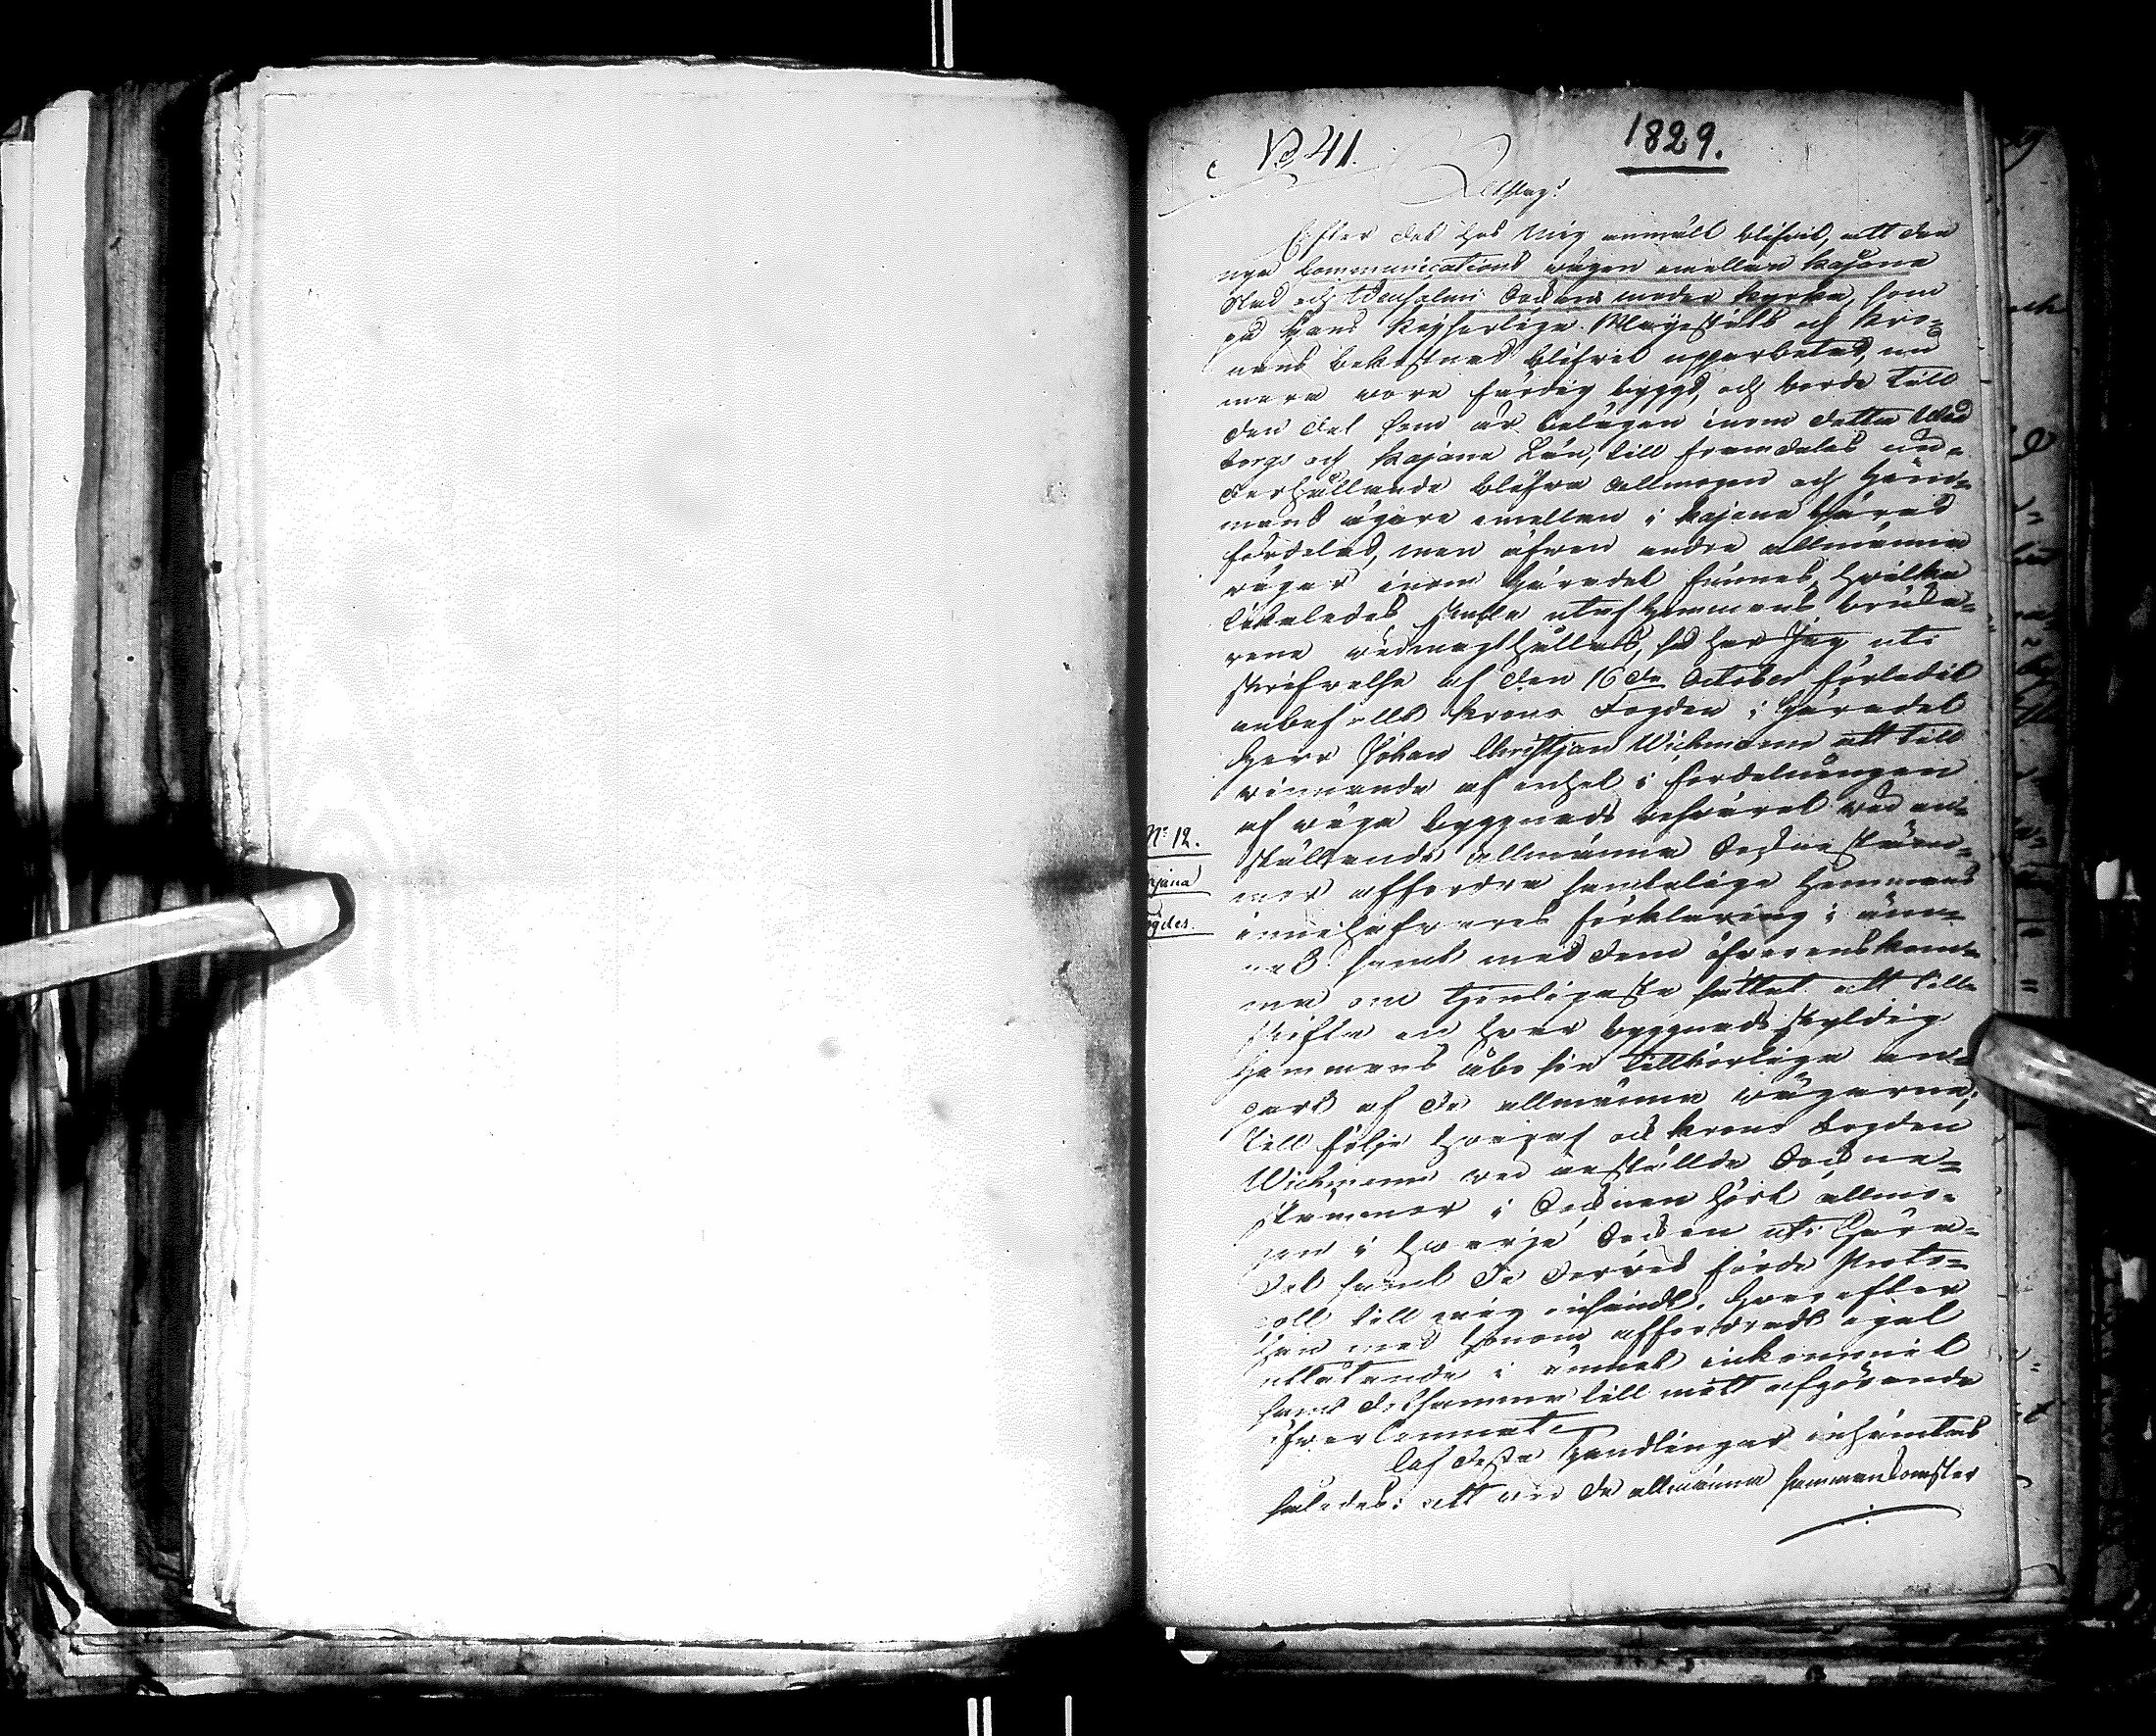 No 41.
1829.
Utslag!
Efter det hos mig anmält blifvit, att den
nya Communications vägen emellan Kajana
Stad och Idensalmi Socken moder kyrka, som
på Hans Kejserliga Majestäts och Kro-
nans bekostnad blifvit upparbetad, nu
mera vore färdig byggd, och borde till
den del som är belägen inom detta Uleå
borgs och Kajana Län, till framdeles un-
derhållande blifva allmogen och Hem-
mans ägare emellan i Kajana Härad
fördelad, men äfven andra allmänna
vägar inom häradet finnas, hvilka
likaledes skola utaf Hemmans bruka-
rene vidmagthållas, så har Jag uti
skrifvelse af den 16de October förledit
anbefallt Krono Fogden i häradet
Herr Johan Christjan Wichmann att till
vinnande af enhet i fördelningen
af väga byggnads besväret vid an-
ställande allmänna Sockne stäm-
mor affordra samtelige Hemmans
innehafvares förklaring i äm-
net samt med dem öfverenskom-
ma om tjenligaste sättet att till-
skifta en hvar byggnads skyldig
Hemmans åbo sin tillbörliga an-
part af de allmänna vägarne;
Till följe hvaraf ock Krono Fogden
Wichmann vid anställde Sockne-
stämmor i Socknen hört allmo-
gen i hvarje Socken uti Hära-
det samt de dervid förde Proto-
coll till mig insändt, hvarefter
han med honom affordradt eget
utlåtande i ämnet inkommit
samt detsamma till mitt afgörande
öfverlemnat
Af dessa Handlingar inhämtas
således: att vid de allmänna sammankomster
No 12.
jana
ögdes.